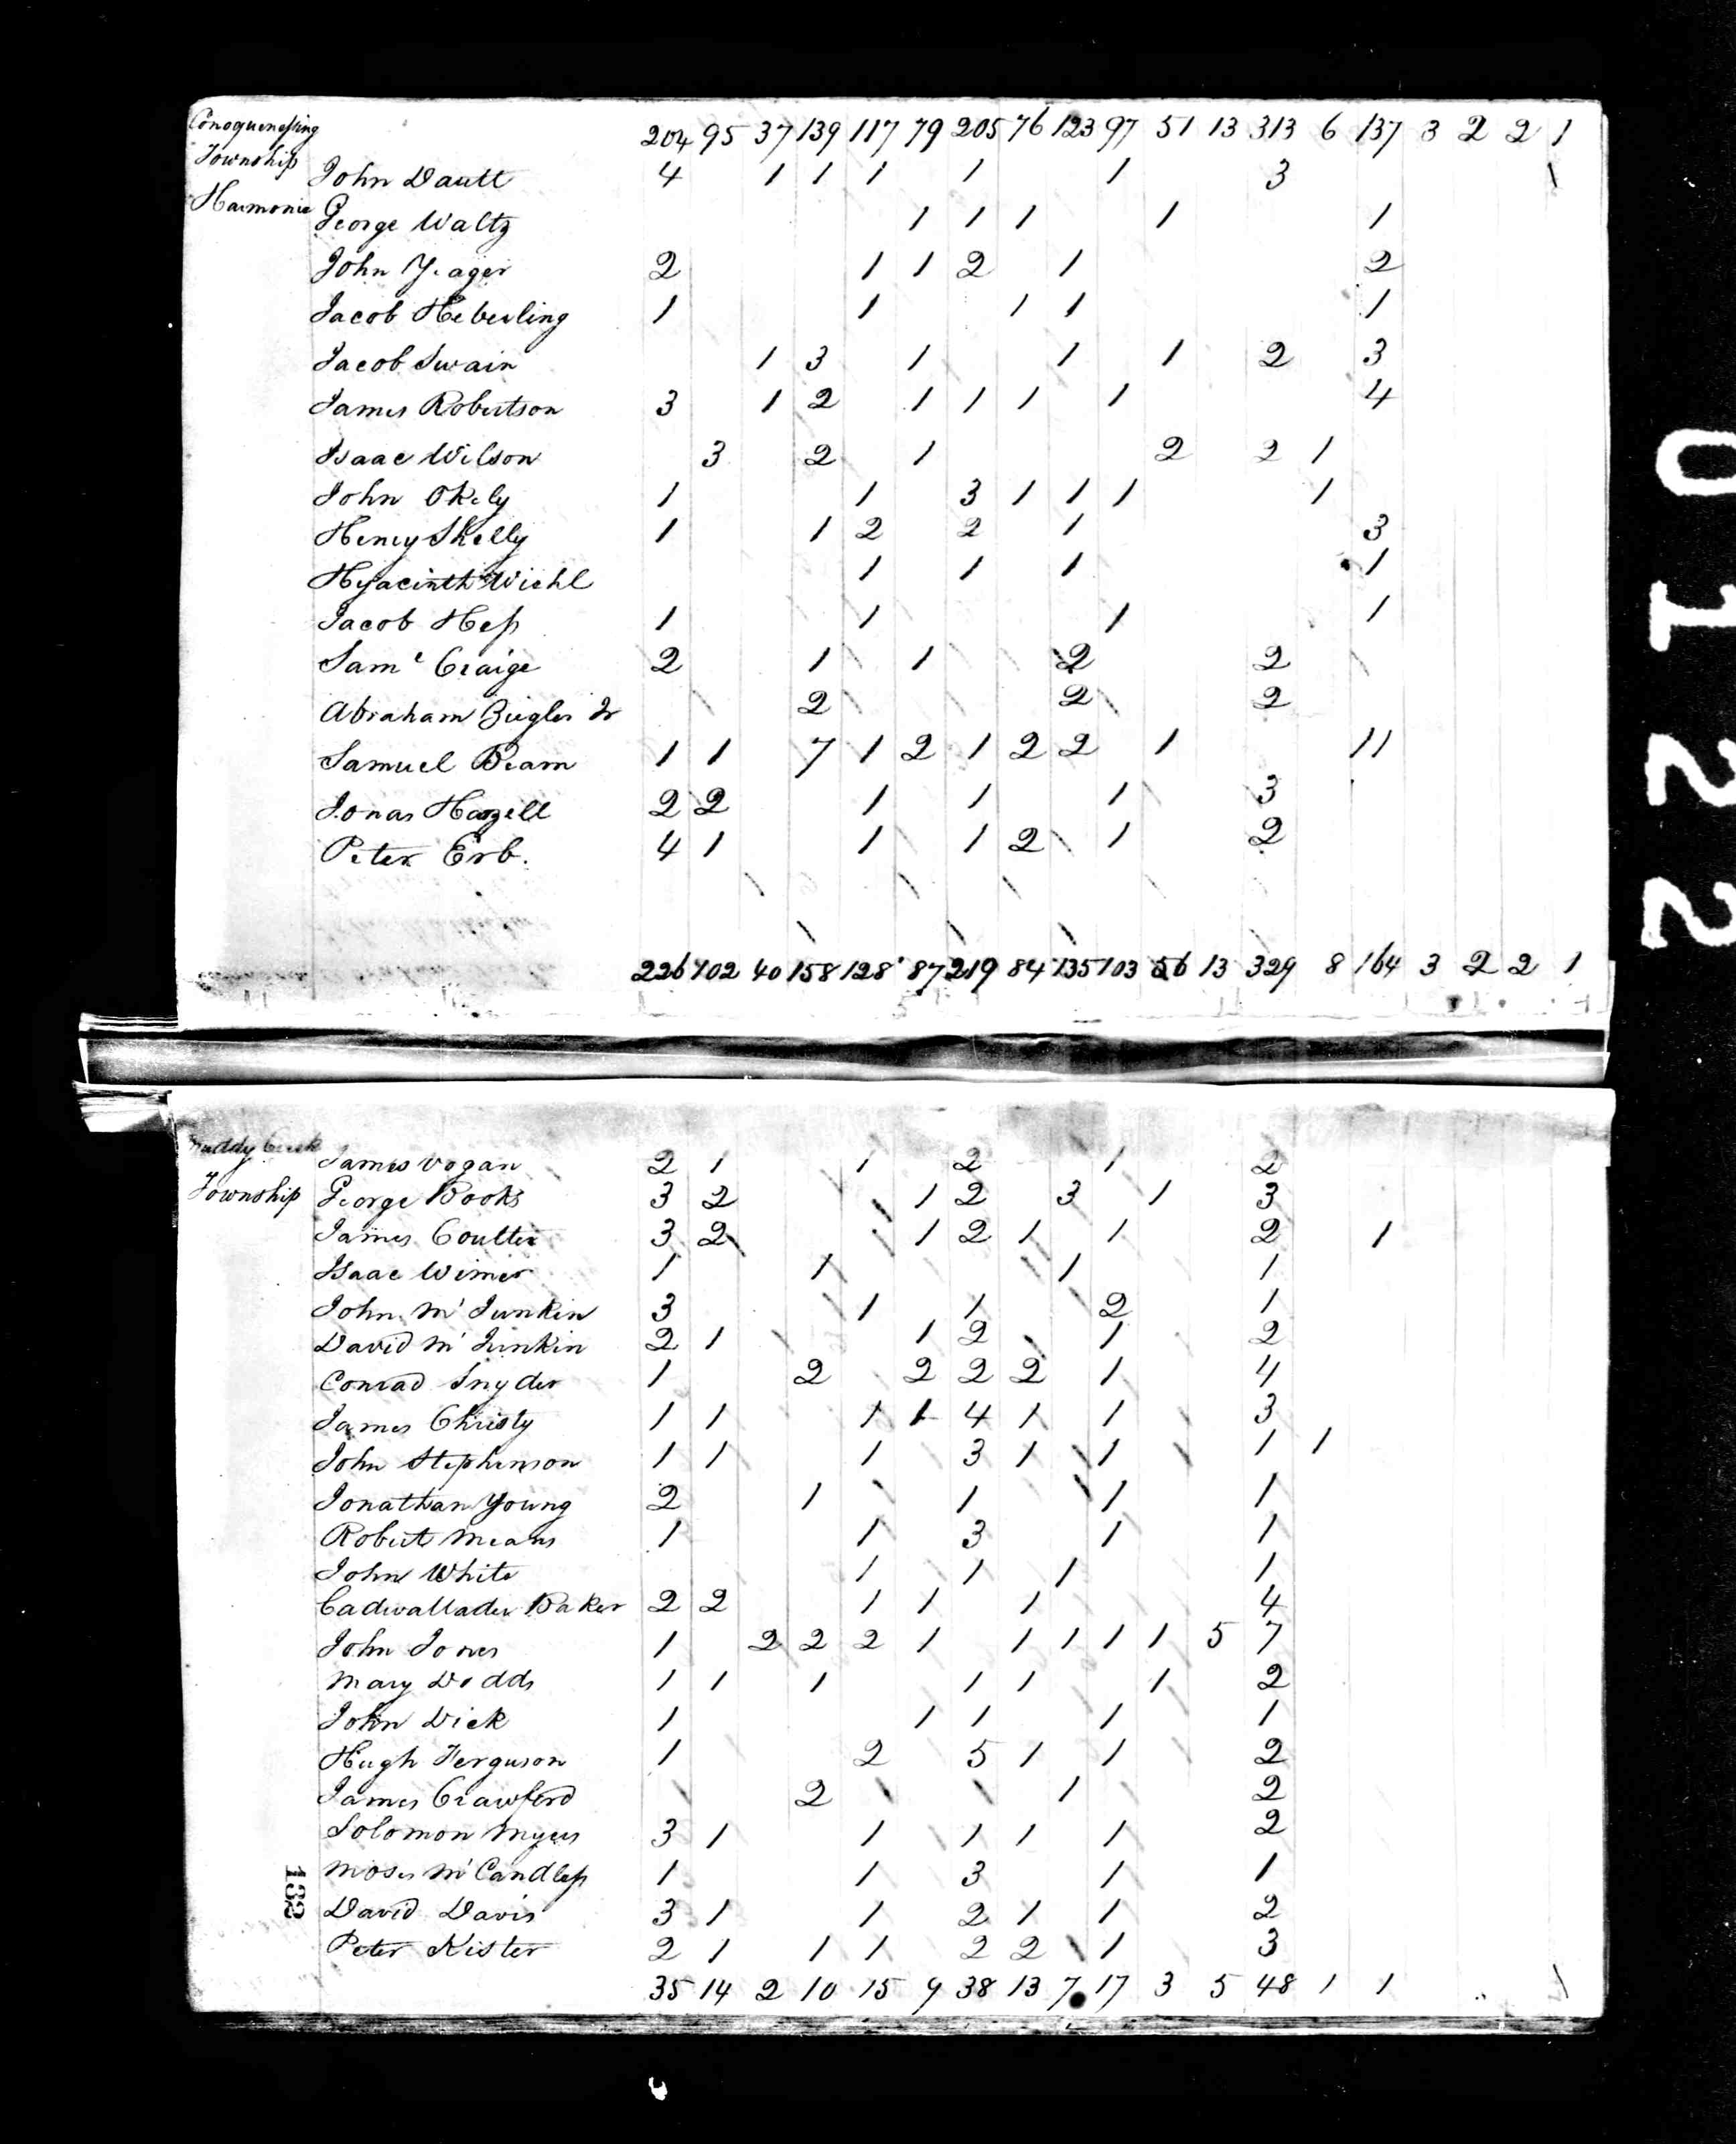 Conoquenessing 204 95 37 139 117 79 205 76 123 97 51 13 313 6 137 3 2 2 1
Township John Dautt 4 1 1 1 1 1 3
Harmonie George Waltz 1 1 1 1 1
John Yeager 2 1 1 2 1 2
Jacob Heberling 1 1 1 1 1
Jacob Swain 1 3 1 1 1 2 3
James Robertson 3 1 2 1 1 1 1 4
Isaac Wilson 3 2 1 2 2 1
John Okely 1 1 3 1 1 1 1
Henry Shelly 1 1 2 2 1 3
Hyacinth Wichl 1 1 1 1
Jacob Hess 1 1 1 1
Saml Craige 2 1 1 2 2
Abraham Zeigler Jr 2 2 2
Samuel Beam 1 1 7 1 2 1 2 2 1 11
Jonas Hazell 2 2 1 1 1 3
Peter Erb. 4 1 1 1 2 1 2
226 102 40 158 128 87 219 84 135 103 56 13 329 8 164 3 2 2 1
0122
Muddy Creek James Vogan 2 1 1 2 1 2
Township George Books 3 2 1 2 3 1 3
James Coulter 3 2 1 2 1 1 2 1
Isaac Wimer 1 1 1 1
John McJunkin 3 1 1 2 1
David McJunkin 2 1 1 2 1 2
Conrad Snyder 1 2 2 2 2 1 4
James Christy 1 1 1 1 4 1 1 3
John Stephenson 1 1 1 3 1 1 1 1
Jonathan Young 2 1 1 1 1
Robert Means 1 1 3 1 1
John White 1 1 1 1
Cadwallader Baker 2 2 1 1 1 4
John Jones 1 2 2 2 1 1 1 1 1 5 7
Mary Dodds 1 1 1 1 1 1 2
John Dick 1 1 1 1 1
Hugh Ferguson 1 2 5 1 1 2
James Crawford 2 1 2
Solomon Myers 3 1 1 1 1 1 2
Moses McCandless 1 1 3 1 1
David Davis 3 1 1 2 1 1 2
Peter Kister 2 1 1 1 2 2 1 3
35 14 2 10 15 9 38 13 7 17 3 5 48 1 1
132